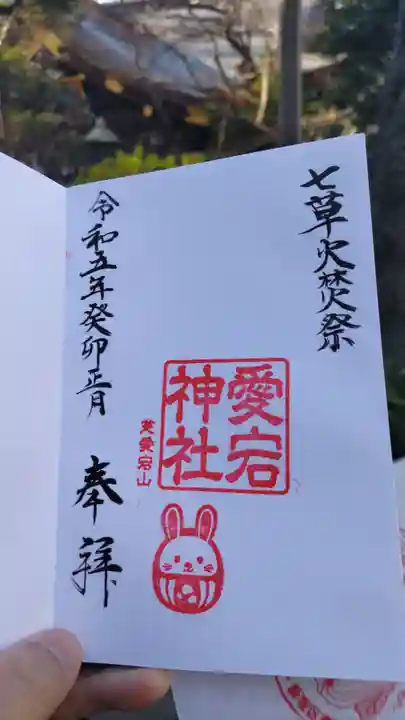 七草火焚祭
愛宕
神社
芝愛宕山
令和五年癸卯正月
奉拝